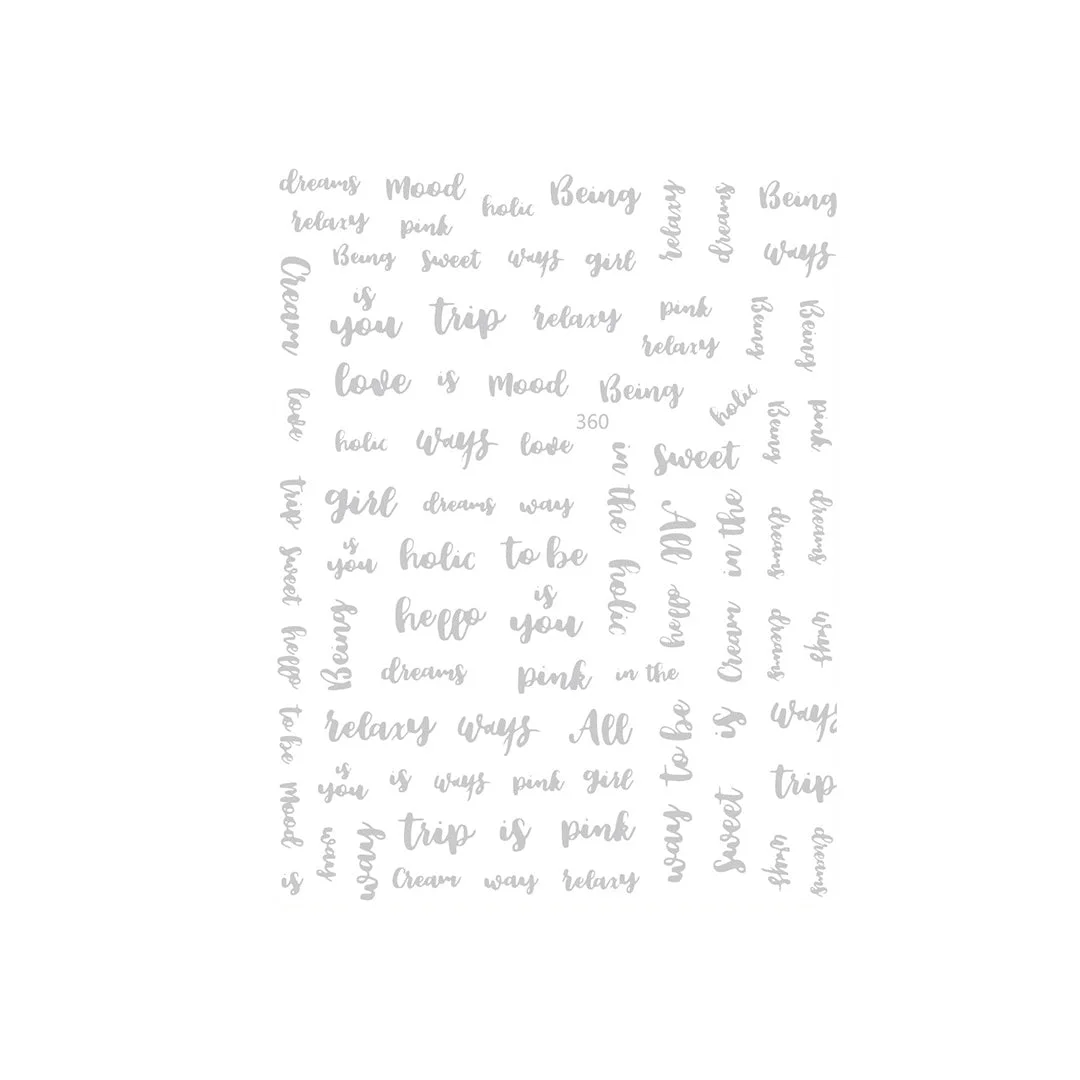 dreams Mood holic Being relaxy dreams Being
relaxy pink
Being sweet ways girl ways
Cream is you trip relaxy pink Being Being
relaxy
love love is Mood Being holic Being pink
360
holic ways love in the sweet
trip girl dreams way All in the dreams dreams
sweet is you holic to be holic
hello Being hello is you hello Cream dreams ways
dreams pink in the
to be relaxy ways All to be is ways
Mood is you is ways pink girl way sweet trip
way way trip is pink ways dreams
is Cream way relaxy